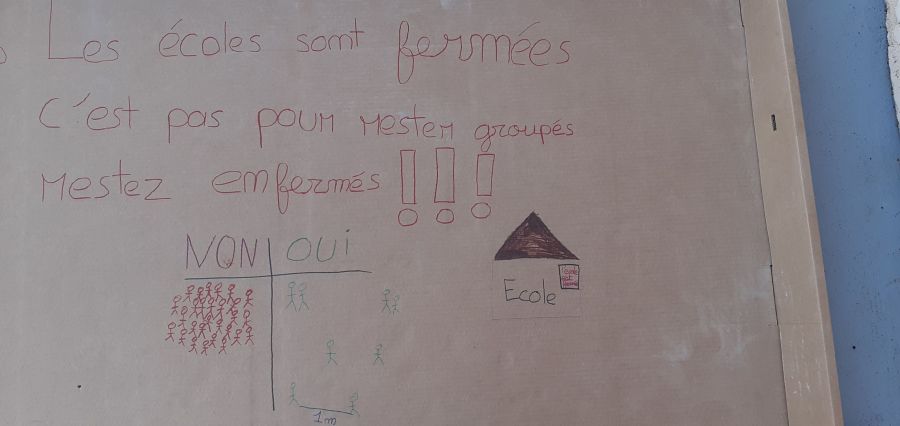 Les écoles sont fermées
C'est pas pour rester groupés
restez enfermés !!!
NON OUI
Ecole
l'école est fermée
1m